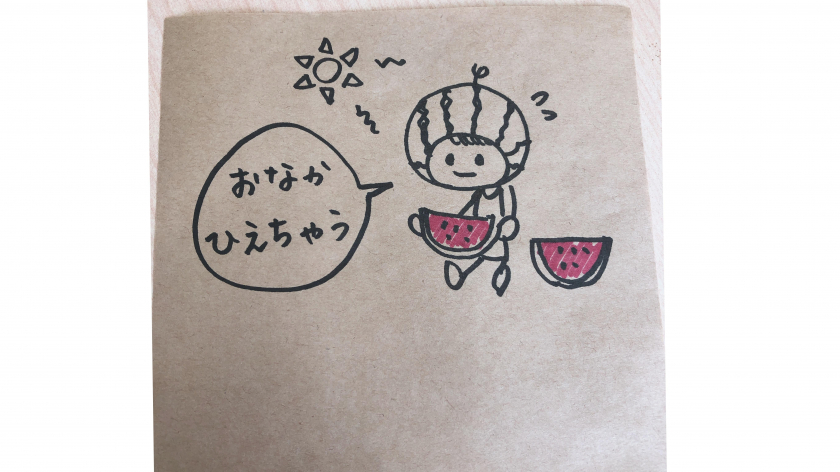 おなか
ひえちゃう